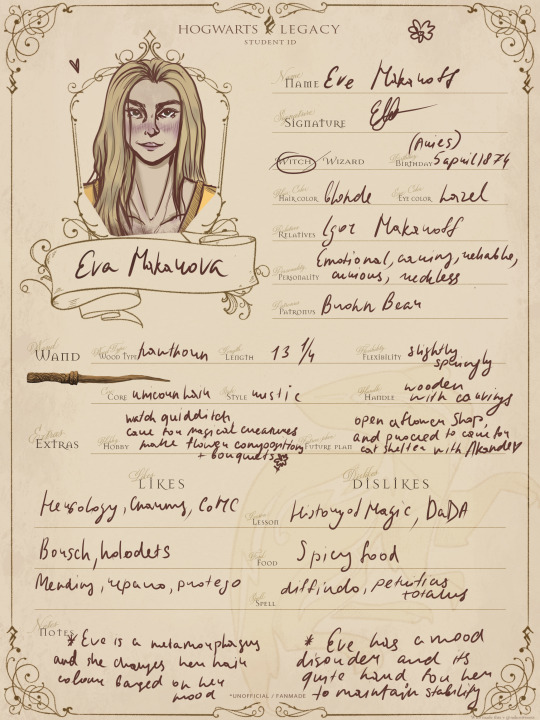 HOGWARTS LEGACY
STUDENT ID
NAME Eve Makanoff
SIGNATURE
WITCH/WIZARD BIRTHDAY 5 april 1874 (Aries)
HAIR COLOR blonde EYE COLOR hazel
RELATIVES Igor Makanoff
PERSONALITY Emotional, caring, reliable,
anxious, reckless
PATRONUS Brown Bear
Eva Makanova
WAND WOOD TYPE hawthorn LENGTH 13 1/4 FLEXIBILITY slightly
springly
CORE unicorn hair STYLE rustic HANDLE wooden
with carvings
EXTRAS HOBBY watch quidditch,
care for magical creatures
make flower composition
+ bouquets
FUTURE PLAN open a flower shop,
and proceed to care for
cat shelter with
LIKES DISLIKES
Herbology, Charms, CoMC LESSON History of Magic, DaDA
Borsch, holodets FOOD Spicy food
Mending, reparo, protego SPELL diffindo, petrificus
totalus
NOTES
* Eve is a metamorphagus
and she changes her hair
colour based on her
mood
* Eve has a mood
disorder and its
quite hard for her
to maintain stability
*UNOFFICIAL / FANMADE